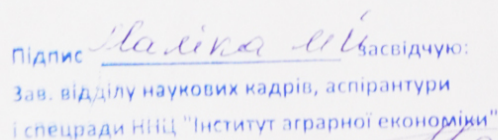 Підпис Маліка М.Й засвідчую:
Зав. відділу наукових кадрів, аспірантури
і спецради ННЦ "Інститут аграрної економіки"